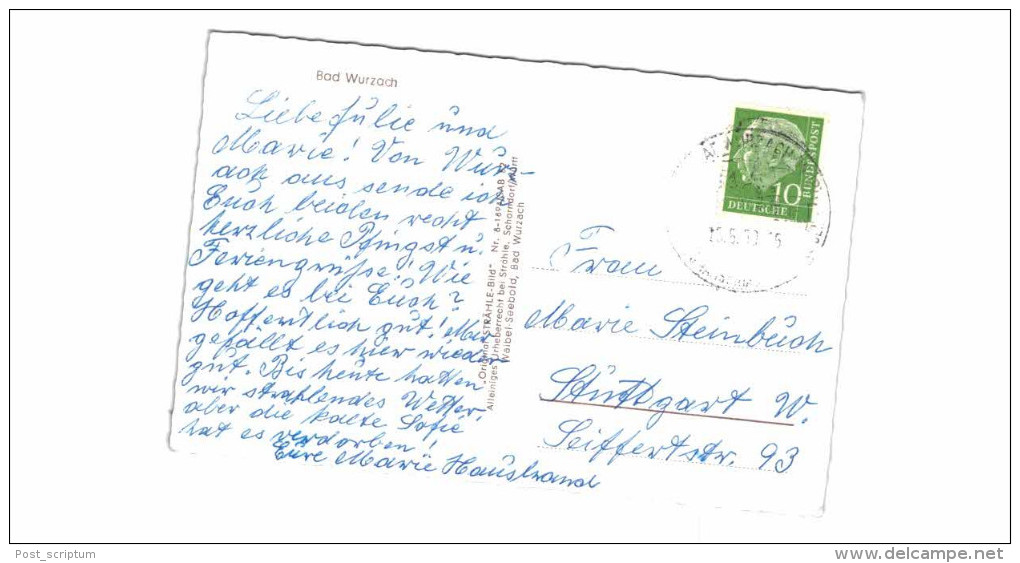 Bad Wurzach
Liebe Julie und
Marie! Von Wur-
zach aus sende ich
Euch beiden recht
herzliche Pfingst u.
Feriengrüsse! Wie
geht es bei Euch?
Hoffentlich gut! Mir
gefällt es hier wieder
gut. Bis heute hatten
wir strahlendes Wetter
aber die kalte Sofie
hat es verdorben!
Eure Marie
"Original-STRÄHLE-Bild" Nr.
Alleiniges Urheberrecht bei Strähle, Schorndorf/Württ
Waibel-Seebold, Bad Wurzach
BUNDESPOST
10
DEUTSCHE
Frau
Marie Steinbuch
Stuttgart W.
Seiffertstr. 93
Post_scriptum
delcampe.net